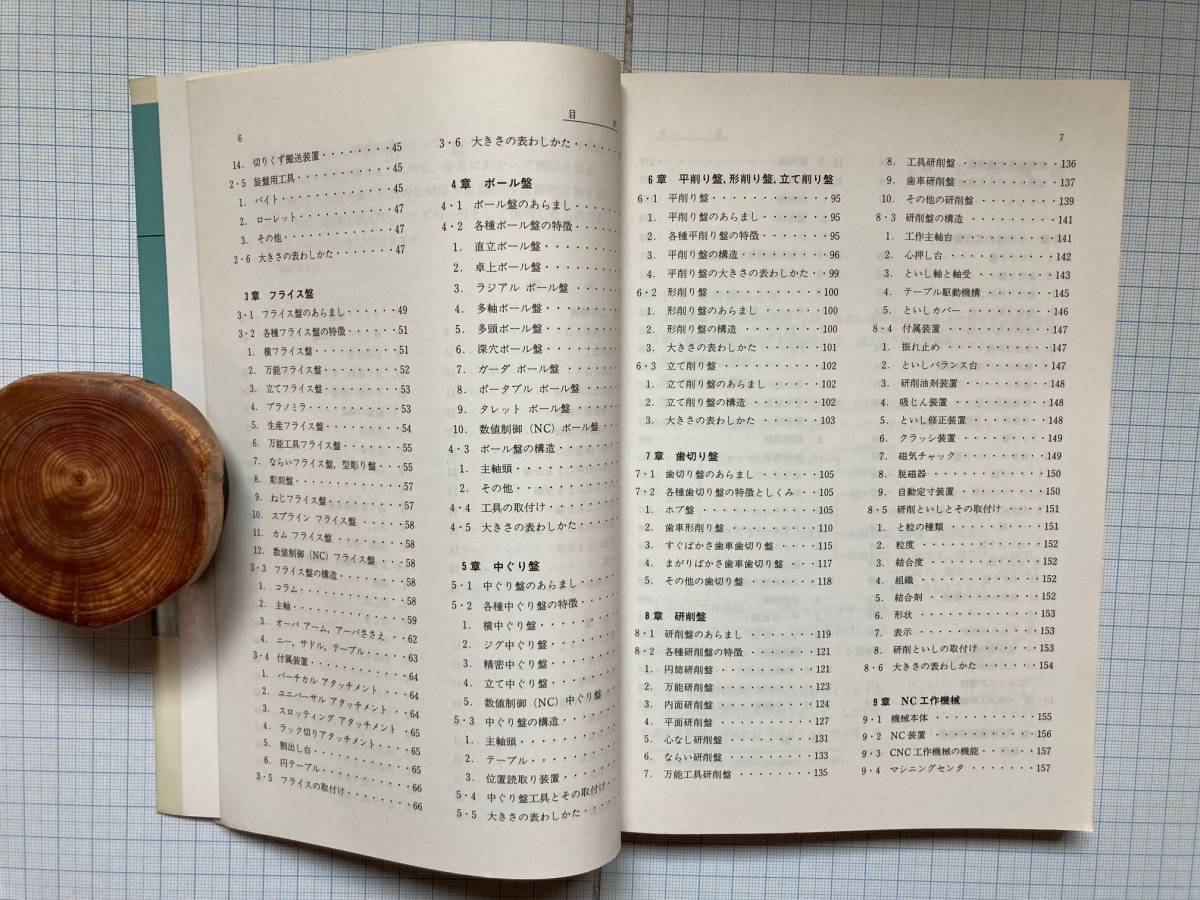 6
14. 切りくず搬送装置・・・・・・・・45
2・5 旋盤用工具・・・・・・・・・・・45
1. バイト・・・・・・・・・・・・・45
2. ローレット・・・・・・・・・・・47
3. その他・・・・・・・・・・・・・47
2・6 大きさの表わしかた・・・・・・・47
3章 フライス盤
3・1 フライス盤のあらまし・・・・・・49
3・2 各種フライス盤の特徴・・・・・・51
1. 横フライス盤・・・・・・・・・・51
2. 万能フライス盤・・・・・・・・・52
3. 立てフライス盤・・・・・・・・・53
4. プラノミラ・・・・・・・・・・・53
5. 生産フライス盤・・・・・・・・・54
6. 万能工具フライス盤・・・・・・・55
7. ならいフライス盤, 型彫り盤・・・55
8. 彫刻盤・・・・・・・・・・・・・57
9. ねじフライス盤・・・・・・・・・57
10. スプライン フライス盤・・・・・58
11. カム フライス盤・・・・・・・・58
12. 数値制御 (NC) フライス盤・・・58
3・3 フライス盤の構造・・・・・・・・58
1. コラム・・・・・・・・・・・・・58
2. 主軸・・・・・・・・・・・・・・59
3. オーバ アーム, アーバささえ・・62
4. ニー, サドル, テーブル・・・・・63
3・4 付属装置・・・・・・・・・・・・64
1. バーチカル アタッチメント・・・64
2. ユニバーサル アタッチメント・・64
3. スロッティング アタッチメント・65
4. ラック切りアタッチメント・・・・65
5. 割出し台・・・・・・・・・・・・65
6. 円テーブル・・・・・・・・・・・66
3・5 フライスの取付け・・・・・・・・66
目
3・6 大きさの表わしかた・・・・・
4章 ボール盤
4・1 ボール盤のあらまし・・・・・
4・2 各種ボール盤の特徴・・・・・
1. 直立ボール盤・・・・・・・・
2. 卓上ボール盤・・・・・・・・
3. ラジアル ボール盤・・・・・
4. 多軸ボール盤・・・・・・・・
5. 多頭ボール盤・・・・・・・・
6. 深穴ボール盤・・・・・・・・
7. ガーダ ボール盤・・・・・・
8. ポータブル ボール盤・・・・
9. タレット ボール盤・・・・・
10. 数値制御 (NC) ボール盤・・
4・3 ボール盤の構造・・・・・・・
1. 主軸頭・・・・・・・・・・・
2. その他・・・・・・・・・・・
4・4 工具の取付け・・・・・・・・
4・5 大きさの表わしかた・・・・・
5章 中ぐり盤
5・1 中ぐり盤のあらまし・・・・・
5・2 各種中ぐり盤の特徴・・・・・
1. 横中ぐり盤・・・・・・・・・
2. ジグ中ぐり盤・・・・・・・・
3. 精密中ぐり盤・・・・・・・・
4. 立て中ぐり盤・・・・・・・・
5. 数値制御 (NC) 中ぐり盤・・
5・3 中ぐり盤の構造・・・・・・・
1. 主軸頭・・・・・・・・・・・
2. テーブル・・・・・・・・・・
3. 位置読取り装置・・・・・・・
5・4 中ぐり盤工具とその取付け・・
5・5 大きさの表わしかた・・・・・
7
6章 平削り盤, 形削り盤, 立て削り盤
6・1 平削り盤・・・・・・・・・・・・95
1. 平削り盤のあらまし・・・・・・・95
2. 各種平削り盤の特徴・・・・・・・95
3. 平削り盤の構造・・・・・・・・・96
4. 平削り盤の大きさの表わしかた・・99
6・2 形削り盤・・・・・・・・・・・・100
1. 形削り盤のあらまし・・・・・・・100
2. 形削り盤の構造・・・・・・・・・100
3. 大きさの表わしかた・・・・・・・101
6・3 立て削り盤・・・・・・・・・・・102
1. 立て削り盤のあらまし・・・・・・102
2. 立て削り盤の構造・・・・・・・・102
3. 大きさの表わしかた・・・・・・・103
7章 歯切り盤
7・1 歯切り盤のあらまし・・・・・・・105
7・2 各種歯切り盤の特徴としくみ・・・105
1. ホブ盤・・・・・・・・・・・・・105
2. 歯車形削り盤・・・・・・・・・・110
3. すぐばかさ歯車歯切り盤・・・・・115
4. まがりばかさ歯車歯切り盤・・・・117
5. その他の歯切り盤・・・・・・・・118
8章 研削盤
8・1 研削盤のあらまし・・・・・・・・119
8・2 各種研削盤の特徴・・・・・・・・121
1. 円筒研削盤・・・・・・・・・・・121
2. 万能研削盤・・・・・・・・・・・123
3. 内面研削盤・・・・・・・・・・・124
4. 平面研削盤・・・・・・・・・・・127
5. 心なし研削盤・・・・・・・・・・131
6. ならい研削盤・・・・・・・・・・133
7. 万能工具研削盤・・・・・・・・・135
8. 工具研削盤・・・・・・・・・・・136
9. 歯車研削盤・・・・・・・・・・・137
10. その他の研削盤・・・・・・・・139
8・3 研削盤の構造・・・・・・・・・・141
1. 工作主軸台・・・・・・・・・・・141
2. 心押し台・・・・・・・・・・・・142
3. といし軸と軸受・・・・・・・・・143
4. テーブル駆動機構・・・・・・・・145
5. といしカバー・・・・・・・・・・146
8・4 付属装置・・・・・・・・・・・・147
1. 振れ止め・・・・・・・・・・・・147
2. といしバランス台・・・・・・・・147
3. 研削油剤装置・・・・・・・・・・148
4. 吸じん装置・・・・・・・・・・・148
5. といし修正装置・・・・・・・・・148
6. クラッシ装置・・・・・・・・・・149
7. 磁気チャック・・・・・・・・・・149
8. 脱磁器・・・・・・・・・・・・・150
9. 自動定寸装置・・・・・・・・・・150
8・5 研削といしとその取付け・・・・・151
1. と粒の種類・・・・・・・・・・・151
2. 粒度・・・・・・・・・・・・・・152
3. 結合度・・・・・・・・・・・・・152
4. 組織・・・・・・・・・・・・・・152
5. 結合剤・・・・・・・・・・・・・152
6. 形状・・・・・・・・・・・・・・153
7. 表示・・・・・・・・・・・・・・153
8. 研削といしの取付け・・・・・・・153
8・6 大きさの表わしかた・・・・・・・154
9章 NC工作機械
9・1 機械本体・・・・・・・・・・・・155
9・2 NC装置・・・・・・・・・・・・156
9・3 CNC工作機械の機能・・・・・・157
9・4 マシニングセンタ・・・・・・・・157